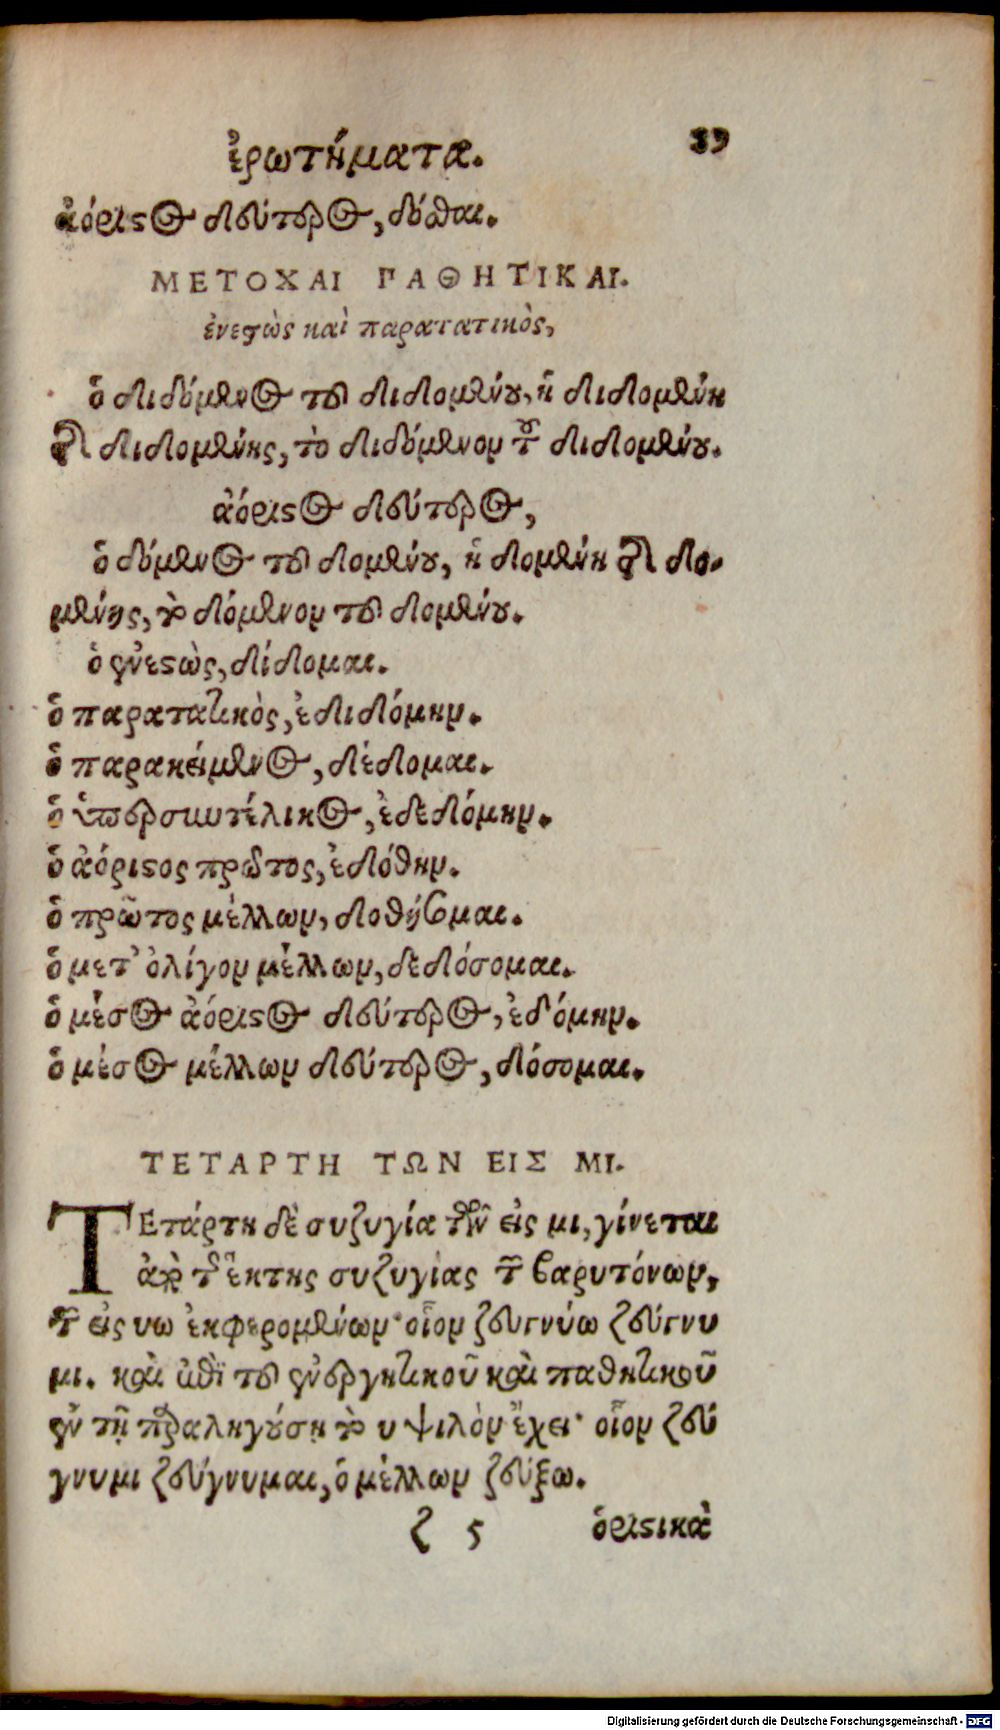 ἐρωτήματα. 89
ἀόριστος δεύτερος, δόσθαι.
ΜΕΤΟΧΑΙ ΠΑΘΗΤΙΚΑΙ.
ἐνεστὼς καὶ παρατατικὸς,
ὁ διδόμενος τοῦ διδομένου, ἡ διδομένη
τῆς διδομένης, τὸ διδόμενον τοῦ διδομένου.
ἀόριστος δεύτερος,
ὁ δόμενος τοῦ δομένου, ἡ δομένη τῆς δο-
μένης, τὸ δόμενον τοῦ δομένου.
ὁ ἐνεστὼς, δίδομαι.
ὁ παρατατικὸς, ἐδιδόμην.
ὁ παρακείμενος, δέδομαι.
ὁ ὑπερσυντέλικος, ἐδεδόμην.
ὁ ἀόριστος πρῶτος, ἐδόθην.
ὁ πρῶτος μέλλων, δοθήσομαι.
ὁ μετ' ὀλίγον μέλλων, δεδόσομαι.
ὁ μέσος ἀόριστος δεύτερος, ἐδόμην.
ὁ μέσος μέλλων δεύτερος, δόσομαι.
ΤΕΤΑΡΤΗ ΤΩΝ ΕΙΣ ΜΙ.
ΤΕτάρτη δὲ συζυγία τῶν εἰς μι, γίνεται
ἀπὸ τῆς ἕκτης συζυγίας τῶν βαρυτόνων,
τῶν εἰς υω ἐκφερομένων· οἷον ζευγνύω ζεύγνυ
μι. καὶ ἐπὶ τοῦ ἐνεργητικοῦ καὶ παθητικοῦ
ἐν τῇ παραληγούσῃ τὸ υ ψιλὸν ἔχει· οἷον ζεύ
γνυμι ζεύγνυμαι, ὁ μέλλων ζεύξω.
ζ 5 ὁριστικὰ
Digitalisierung gefördert durch die Deutsche Forschungsgemeinschaft - DFG